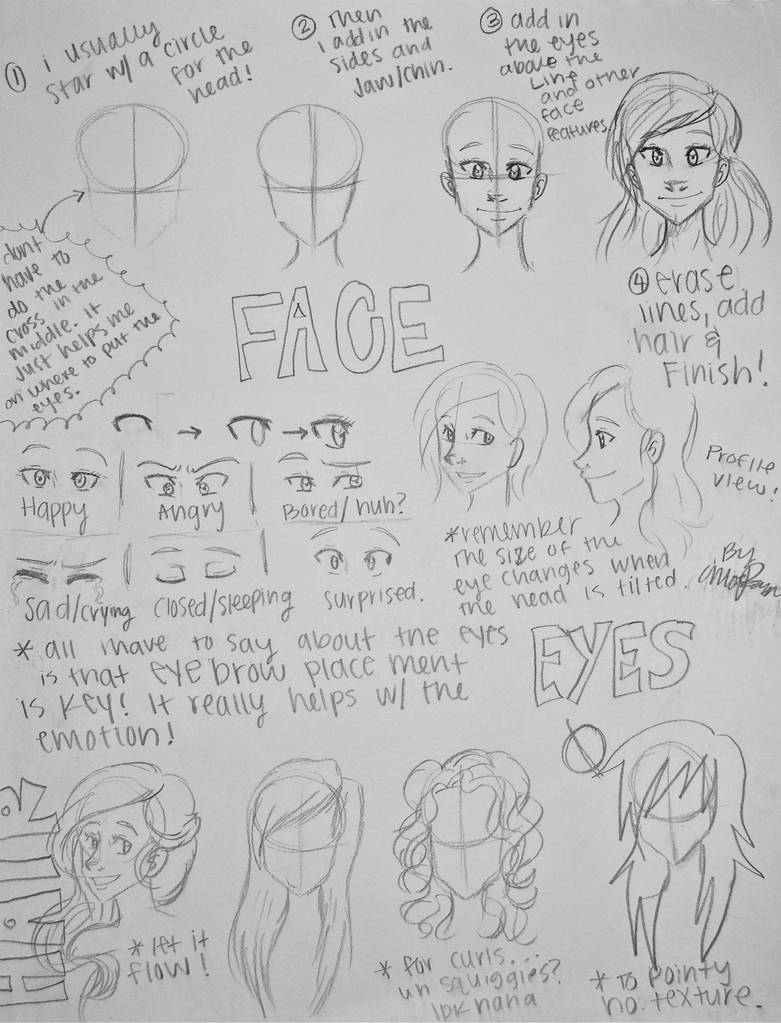 ① i usually
star w/ a circle
for the
head!
② Then
i add in the
sides and
Jaw/chin.
③ add in
the eyes
above the
Line
and other
face
features.
④ erase
lines, add
hair &
Finish!
dont
have to
do the
cross in the
middle. it
Just helps me
on where to put the
eyes.
FACE
Happy
Angry
Bored/huh?
Sad/crying
closed/sleeping
surprised.
Profile
view!
*remember
the size of the
eye changes when
the head is tilted.
By
* all i have to say about the eyes
is that eyebrow placement
is key! It really helps w/ the
emotion!
EYES
HAIR
* let it
flow!
* for curls...
uh squiggies?
idk haha
* To pointy
no texture.